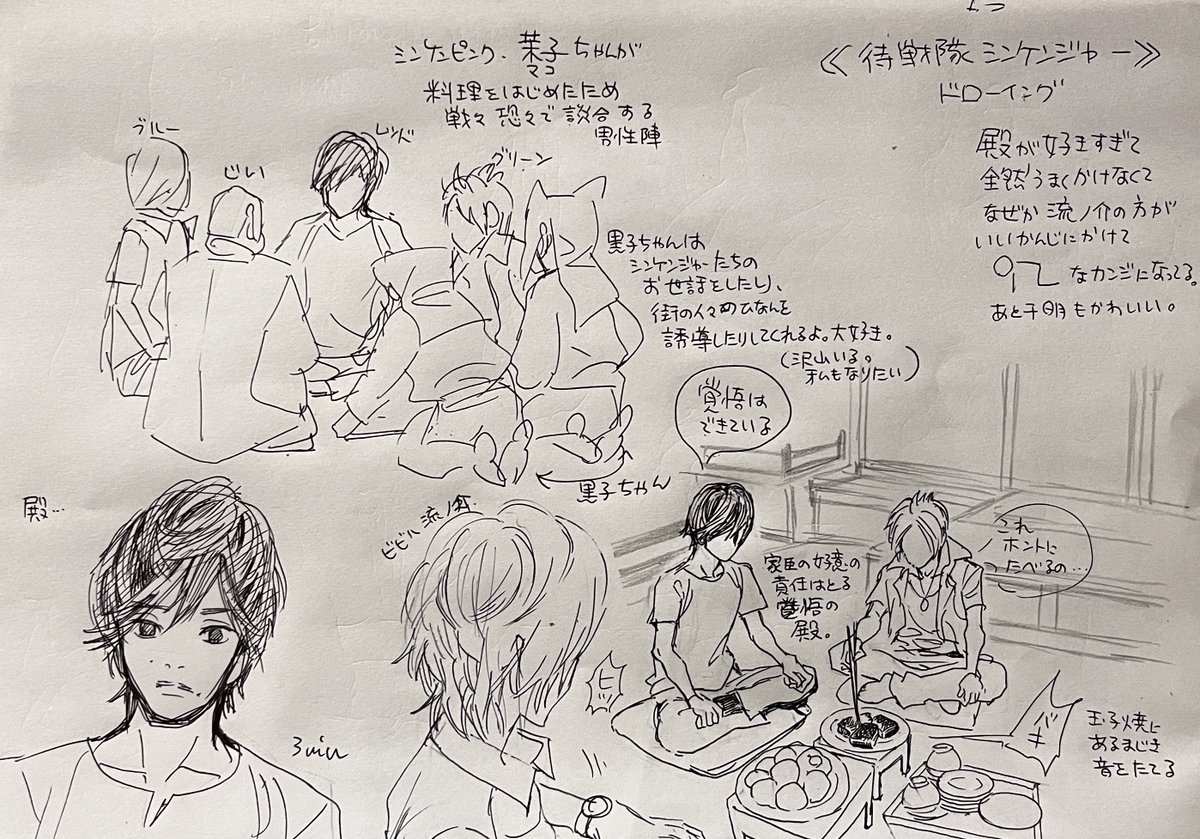 ≪侍戦隊シンケンジャー≫
ドローイング
殿が好きすぎて
全然うまくかけなくて
なぜか流ノ介の方が
いいかんじにかけて
なカンジになってる。
あと千明もかわいい。
シンケンピンク、茉子ちゃんが
マコ
料理をはじめたため
戦々恐々で談合する
男性陣
ブルー
じい
レッド
グリーン
黒子ちゃんは
シンケンジャーたちの
お世話をしたり、
街の人々のひなんを
誘導したりしてくれるよ。大好き。
(沢山いる。
私もなりたい)
黒子ちゃん
覚悟は
できている
殿…
3min
ビビル流ノ介
ヒ
家臣の好意の
責任はとる
覚悟の
殿。
これ
ホントに
たべるの…
バキ
玉子焼に
あるまじき
音をたてる